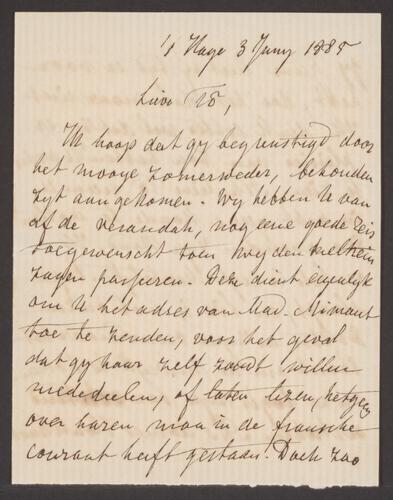 's Hage 3 Juny 1885
Lieve Tó,
Ik hoop dat gy begunstigd door
het mooye zomerweder, behouden
zyt aangekomen. Wy hebben U van
af de verandah, nog eene goede reis
toegewenscht toen wy den trein
zagen passeren. Deze dient eigenlyk
om U het adres van Mad. Mimaut
toe te zenden, voor het geval
dat gy haar zelf zoudt willen
mededeelen, of laten lezen, hetgeen
over haren man in de fransche
courant heeft gestaan. Doch zoo